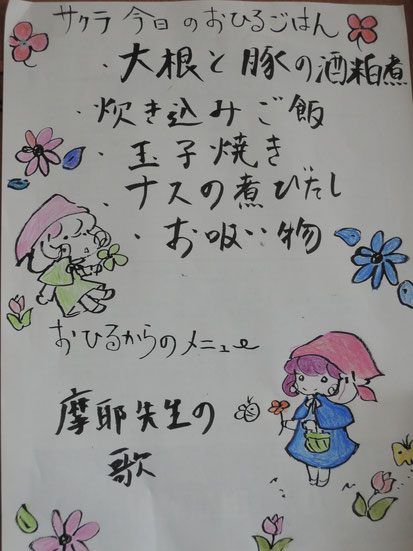 サクラ 今日のおひるごはん
・大根と豚の酒粕煮
・炊き込みご飯
・玉子焼き
・ナスの煮びたし
・お吸い物
おひるからのメニュー
摩耶先生の
歌